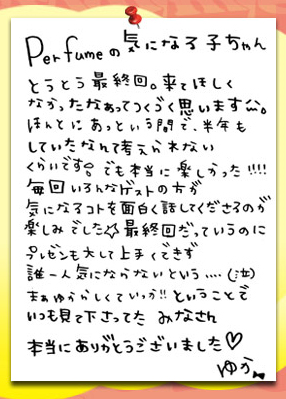 Perfumeの気になる子ちゃん
とうとう最終回。来てほしく
なかったなぁってつくづく思います
ほんとにあっという間で、半年も
していたなんて考えられない
くらいです。でも本当に楽しかった!!!!
毎回いろんなゲストの方が
気になるコトを面白く話してくださるのが
楽しみでした☆最終回だっていうのに
プレゼンも大して上手くできず
誰一人気にならないという....(泣)
まぁゆからしくていっか!!ということで
いつも見て下さってた みなさん
本当にありがとうございました♡
ゆか